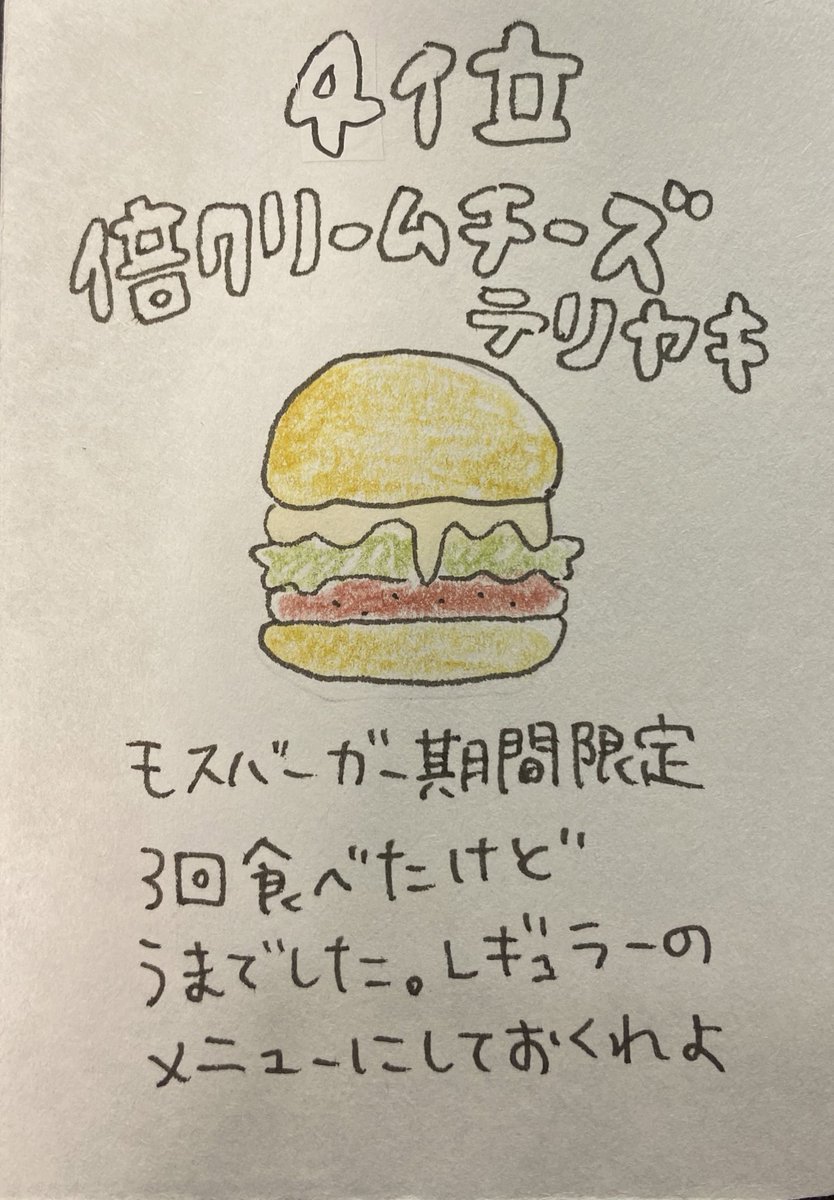 4位
倍クリームチーズ
テリヤキ
モスバーガー期間限定
3回食べたけど
うまでした。レギュラーの
メニューにしておくれよ